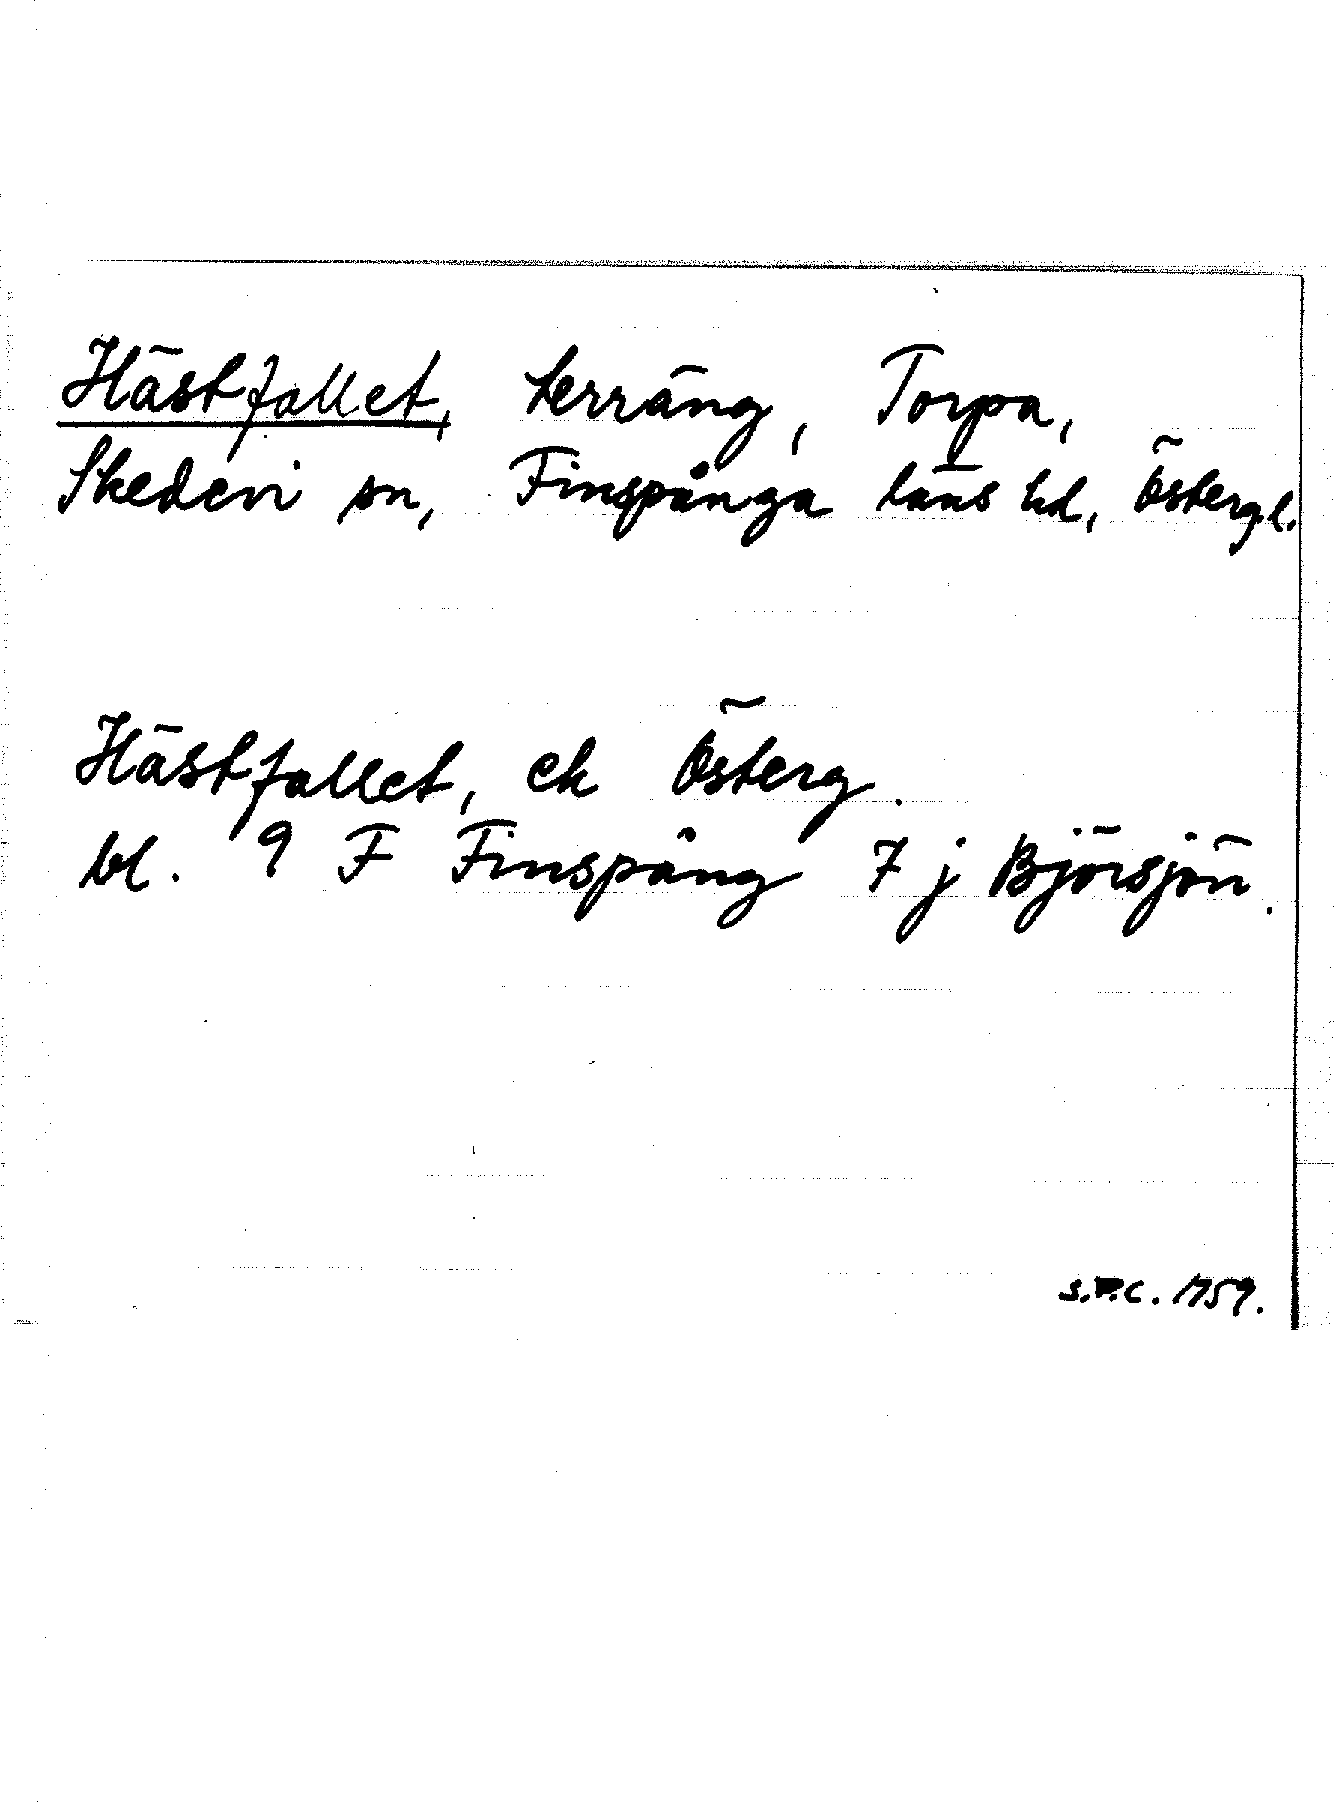 Hästfallet, terräng, Torpa,
Skedevi sn, Finspånga läns hd, Östergl.
Hästfallet, ek Österg.
bl. 9 F Finspång 7 j Björsjön.
S.P.C. 1759.